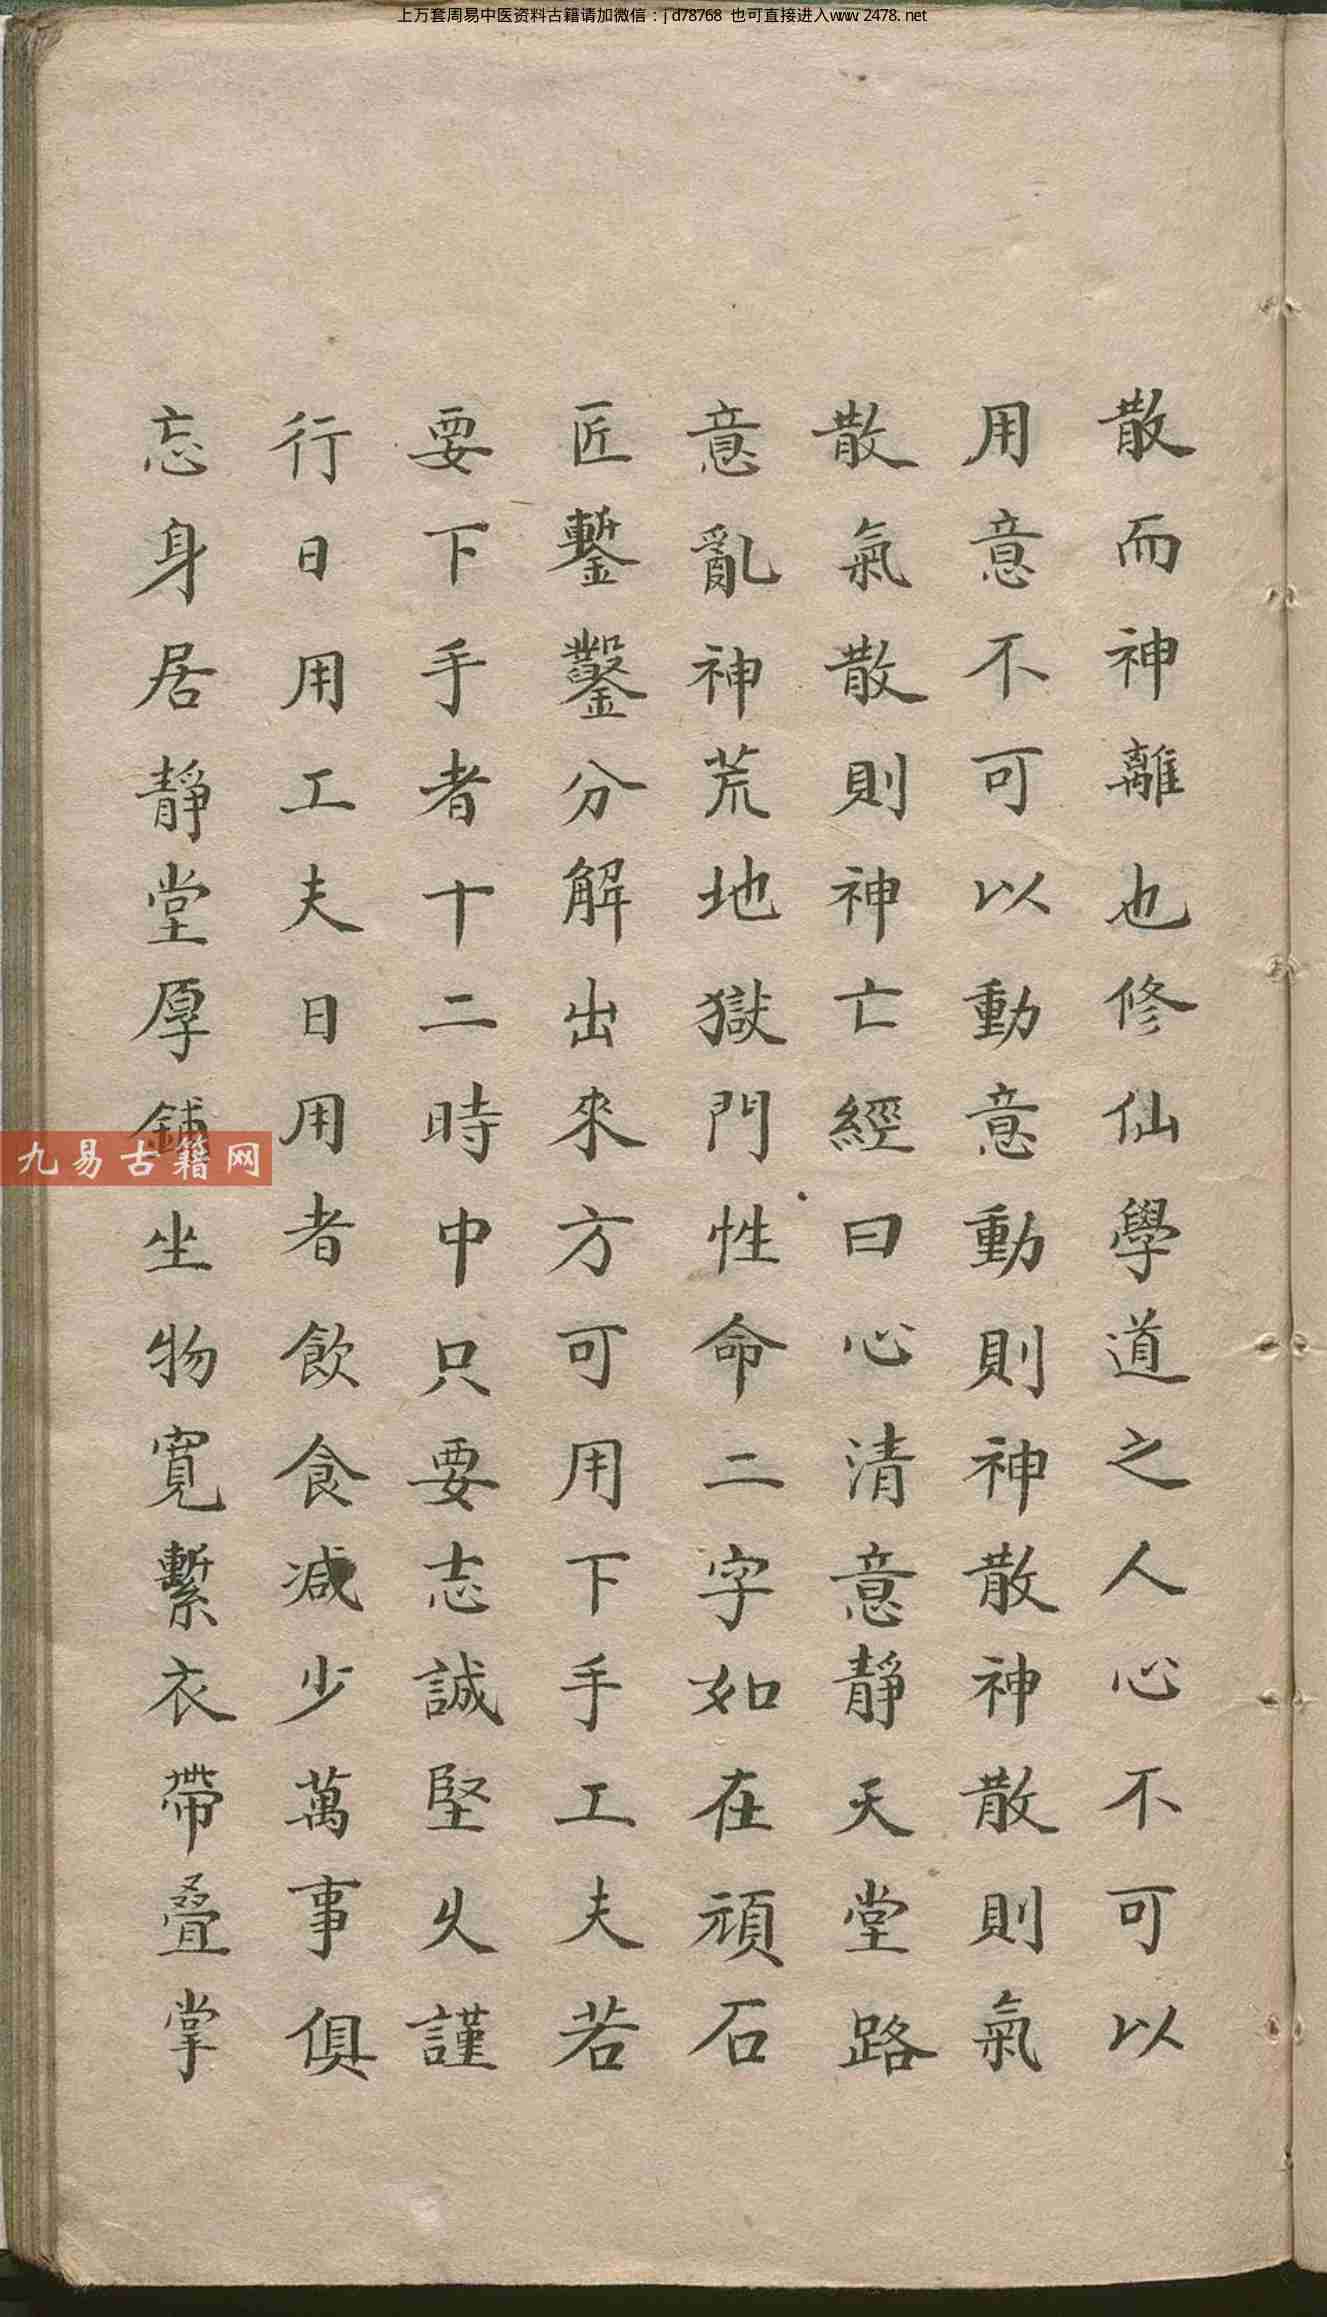 上万套周易中医资料古籍请加微信：jd78768 也可直接进入www2478.net
散而神離也修仙學道之人心不可以
用意不可以動意動則神散神散則氣
散氣散則神亡經曰心清意靜天堂路
意亂神荒地獄門性命二字如在頑石
匠鏨鑿分解出來方可用下手工夫若
要下手者十二時中只要志誠堅久謹
行日用工夫日用者飲食减少萬事俱
忘身居靜堂厚鋪坐物寬繫衣帶疊掌
九易古籍网